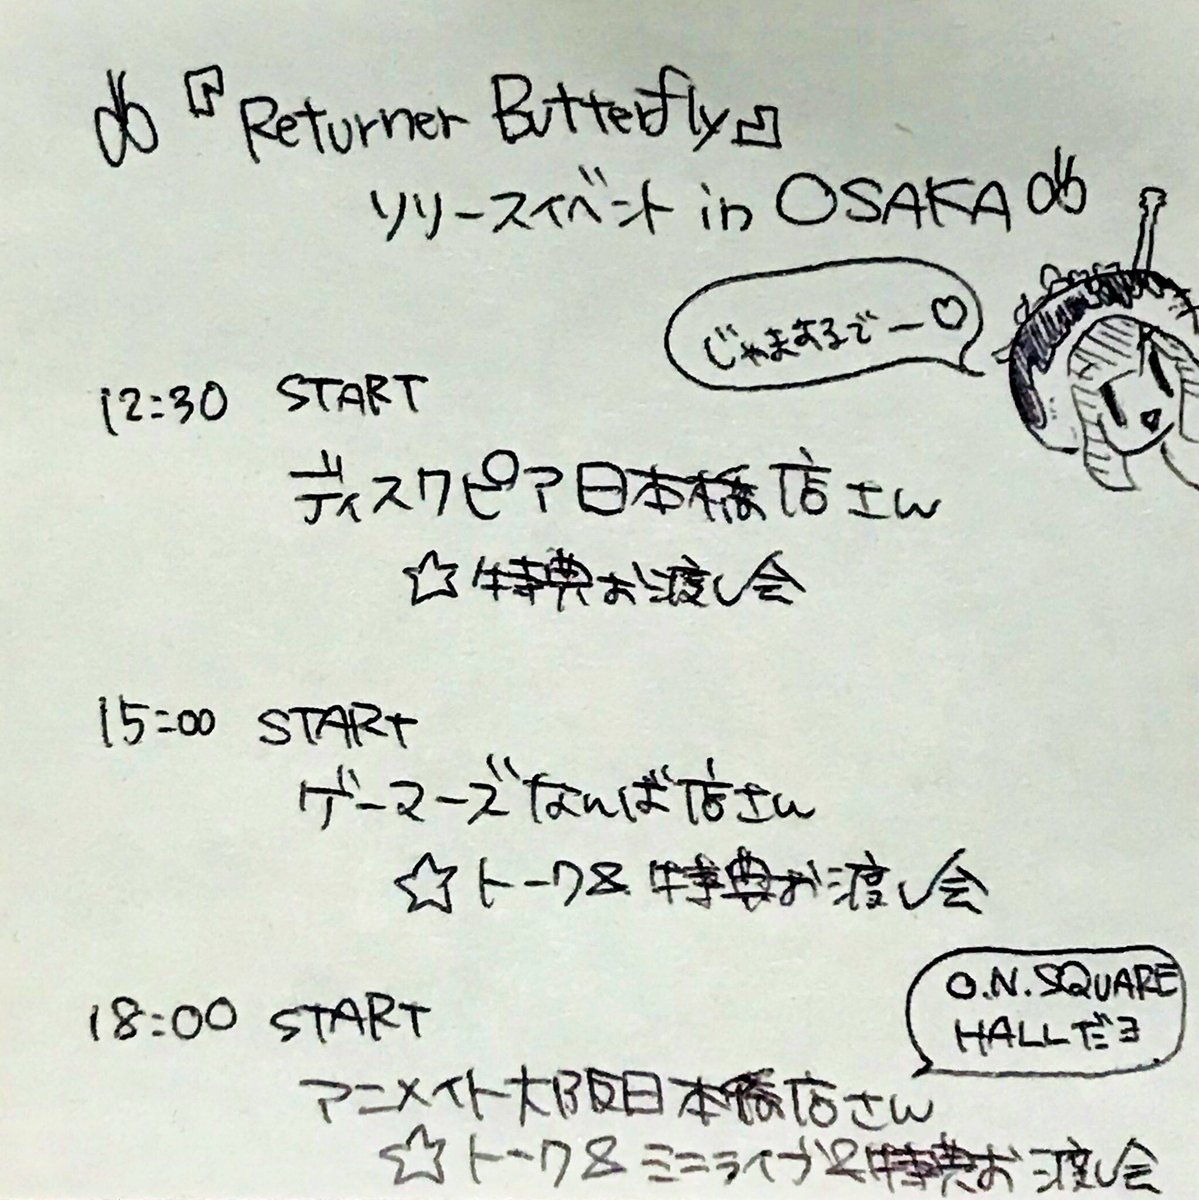 『Returner Butterfly』
リリースイベント in OSAKA
じゃまするでー♡
12:30 START
ディスクピア日本橋店さん
☆特典お渡し会
15:00 START
ゲーマーズなんば店さん
☆トーク&特典お渡し会
O.N.SQUARE
HALLだヨ
18:00 START
アニメイト大阪日本橋店さん
☆トーク&ミニライブ&特典お渡し会